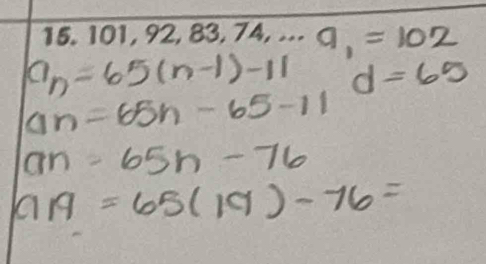 15. 101, 92, 83, 74, ... a₁ = 102
aₙ = 65(n-1)-11 d = 65
an = 65n - 65 - 11
an = 65n - 76
a19 = 65(19) - 76 =